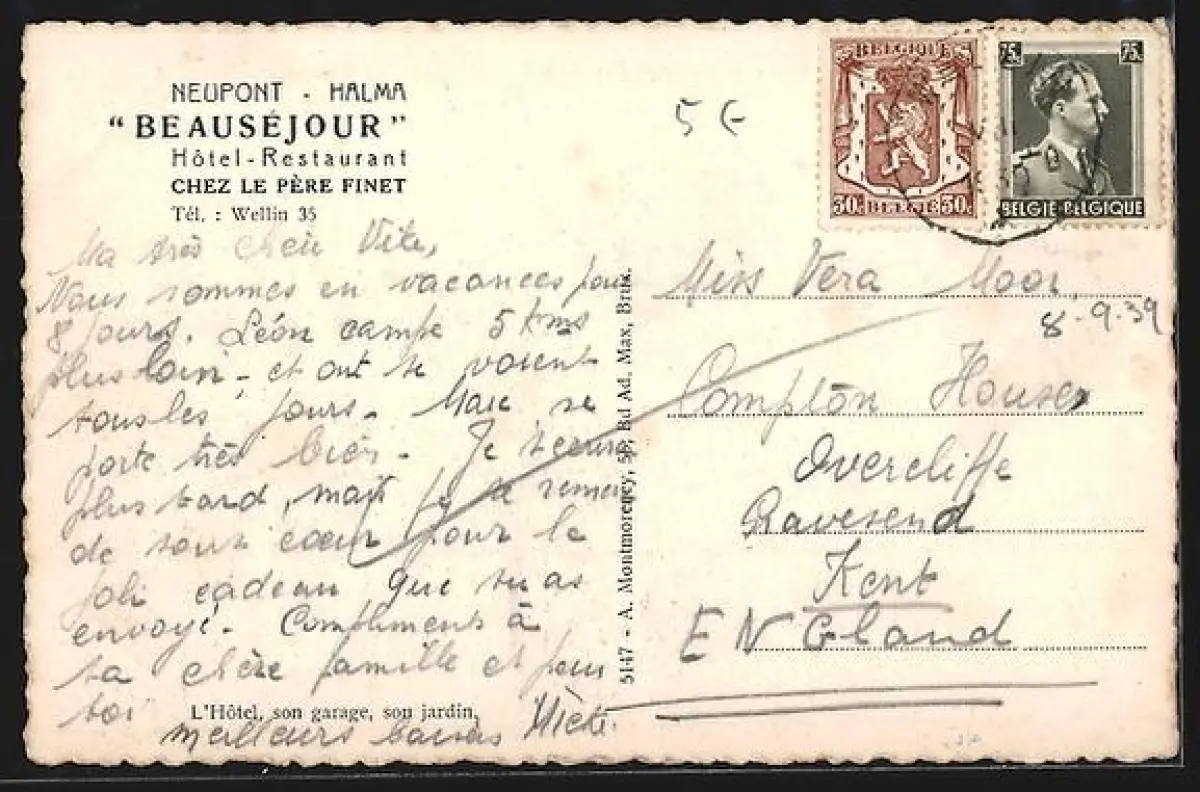 NEUPONT - HALMA
"BEAUSÉJOUR"
Hôtel-Restaurant
CHEZ LE PÈRE FINET
Tél. : Wellin 35
5 €
BELGIQUE
30c BELGIË 30c
75c 75c
BELGIE-BELGIQUE
Ma très
Nous sommes en vacances pour
8 jours. Léon campe 5 kms
plus loin - et ont se voient
tous les jours. se
porte très bien. Je
plus tard, mais je te
de tout cœur pour le
joli cadeau que tu as
envoyé. Compliments à
ta chère famille et pour
toi
meilleurs baisers
L'Hôtel, son garage, son jardin.
5147 - A. Montmorency, 59, Bd Ad. Max, Brux.
Miss Vera Moor
8-9-39
Compton House
Overcliffe
Gravesend
Kent
ENGland